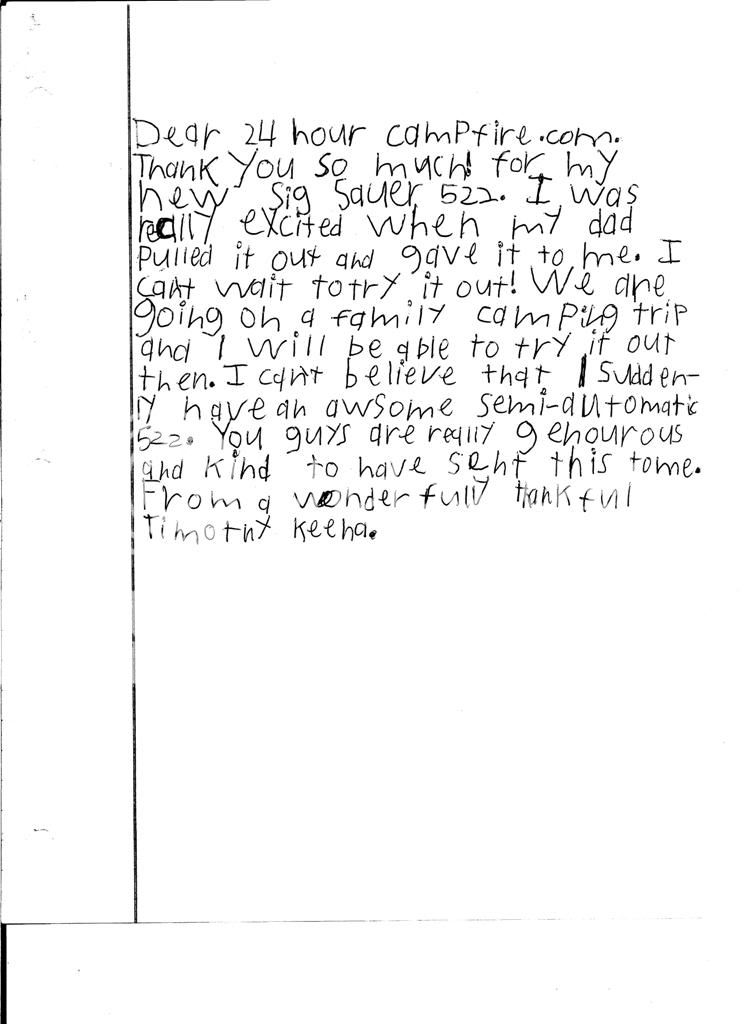 Dear 24 hour campfire.com.
Thank you so much! for my
new Sig Sauer 522. I was
really excited when my dad
pulled it out and gave it to me. I
can't wait to try it out! We are
going on a family camping trip
and I will be able to try it out
then. I can't believe that I sudden-
ly have an awsome semi-automatic
522. You guys are really genourous
and kind to have sent this to me.
From a wonderfully thankful
Timothy Keena.